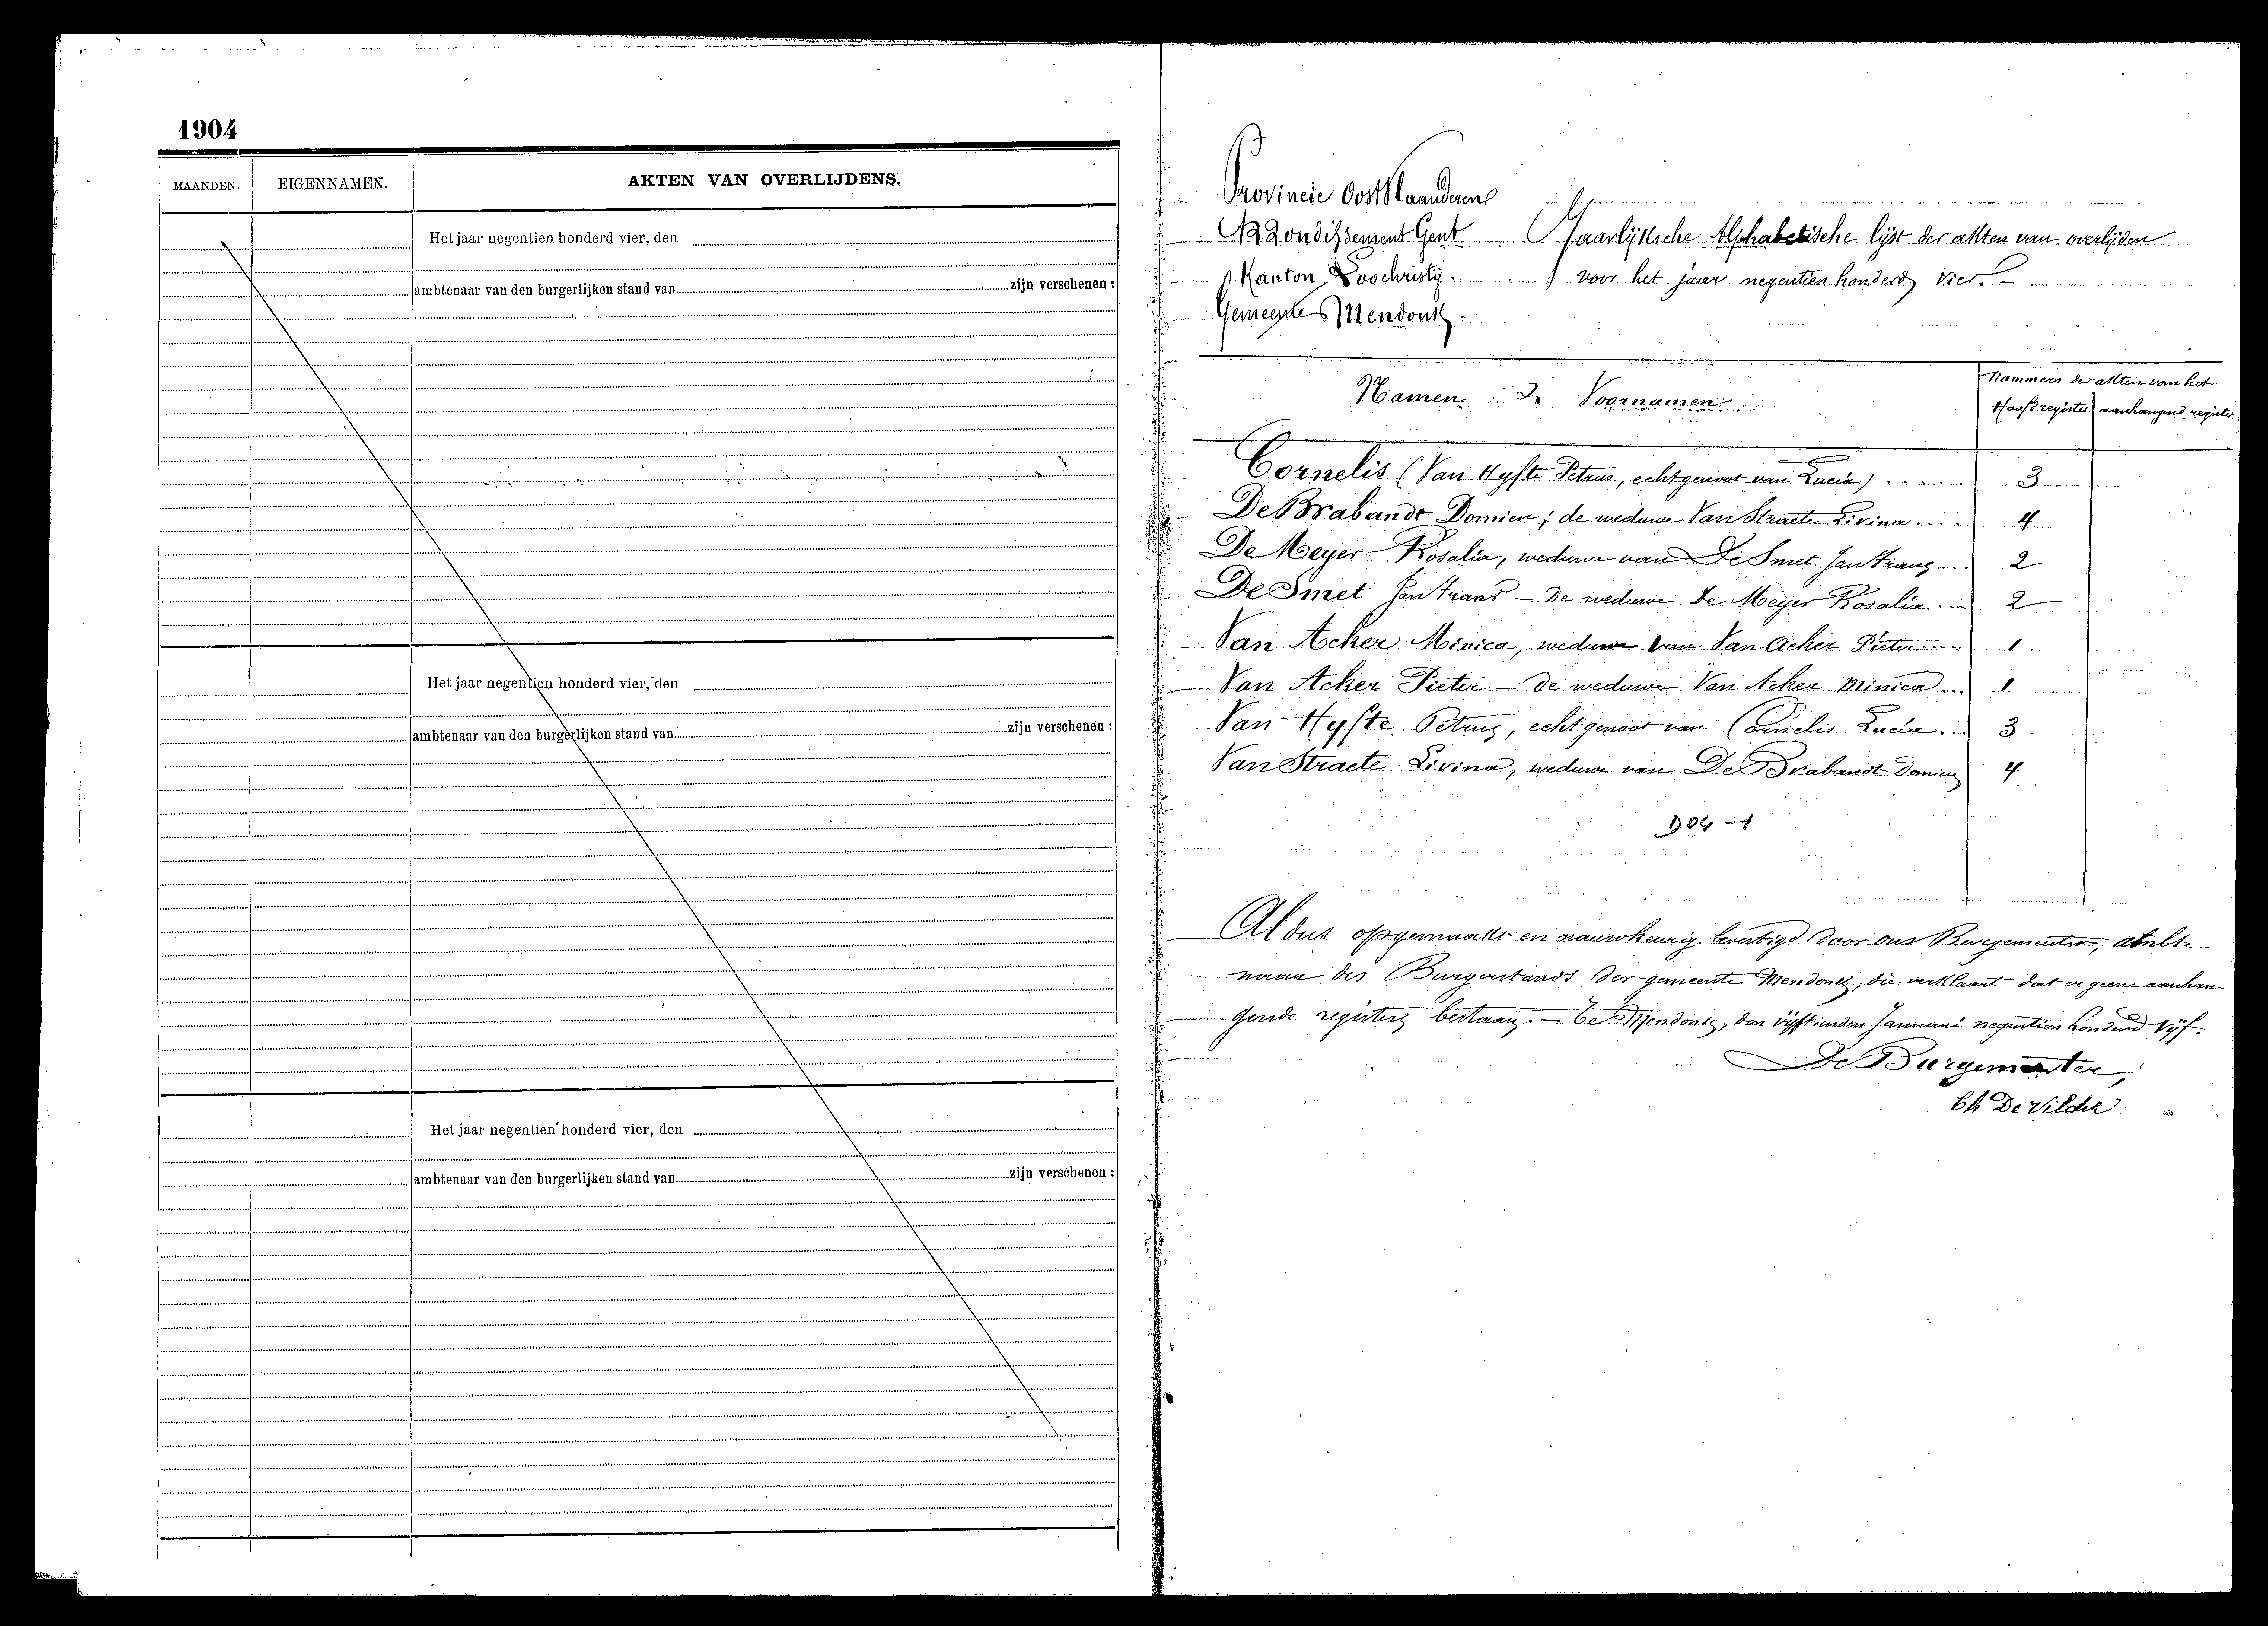 1904
MAANDEN. EIGENNAMEN. AKTEN VAN OVERLIJDENS.
Het jaar negentien honderd vier, den
ambtenaar van den burgerlijken stand van zijn verschenen :
Het jaar negentien honderd vier, den
ambtenaar van den burgerlijken stand van zijn verschenen :
Het jaar negentien honderd vier, den
ambtenaar van den burgerlijken stand van zijn verschenen :
Provincie Oost Vlaanderen
Arrondissement Gent Jaarlijksche Alphabetische lijst der akten van overlijden
Kanton Loochristij. voor het jaar negentien honderd vier. -
Gemeente Mendonk.
Namen & Voornamen
Nummers der akten van het
Hoofdregister aanhangend register
Cornelis (Van Hyfte Petrus, echtgenoot van Lucia) 3
De Brabandt Domien; de weduwe Van Straete Livina 4
De Meyer Rosalia, weduwe van De Smet Jan Frans 2
De Smet Jan Frans - de weduwe De Meyer Rosalia 2
Van Acker Minica, weduwe van Van Acker Pieter 1
Van Acker Pieter - de weduwe Van Acker Minica 1
Van Hyfte Petrus, echtgenoot van Cornelis Lucia 3
Van Straete Livina, weduwe van De Brabandt Domien 4
Aldus opgemaakt en nauwkeurig bevestigd door ons Burgemeester, ambte-
naar des Burgerstands der gemeente Mendonk, die verklaart dat er geene aanhan-
gende registers bestaan. - Te Mendonk, den vijftienden Januari negentien honderd vijf.
De Burgemeester,
Ch De Vilder